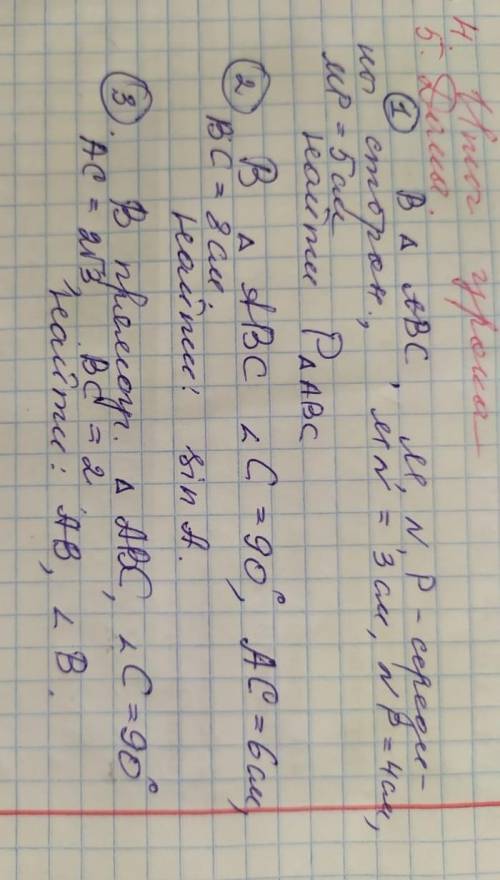 4. Итог урока
5. Д
① В △ ABC, M, N, P - середи-
ны сторон., MN = 3 см, NP = 4 см,
MP = 5 см
Найти P△ABC
② В △ ABC ∠C = 90°, AC = 6 см,
BC = 8 см.
Найти: sin A.
③. В прямоуг. △ ABC, ∠C = 90°
AC = 2√3, BC = 2
Найти: AB, ∠B.